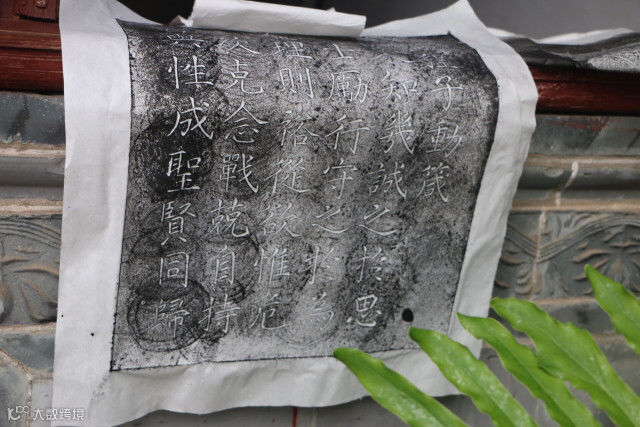 子動箴
知幾誠之於思
士勵行守之於為
理則裕從欲惟危
次克念戰兢自持
與性成聖賢同歸
大数跨境